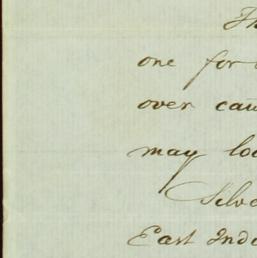 Th
one for
over cau
may loo
Silve
East Indi